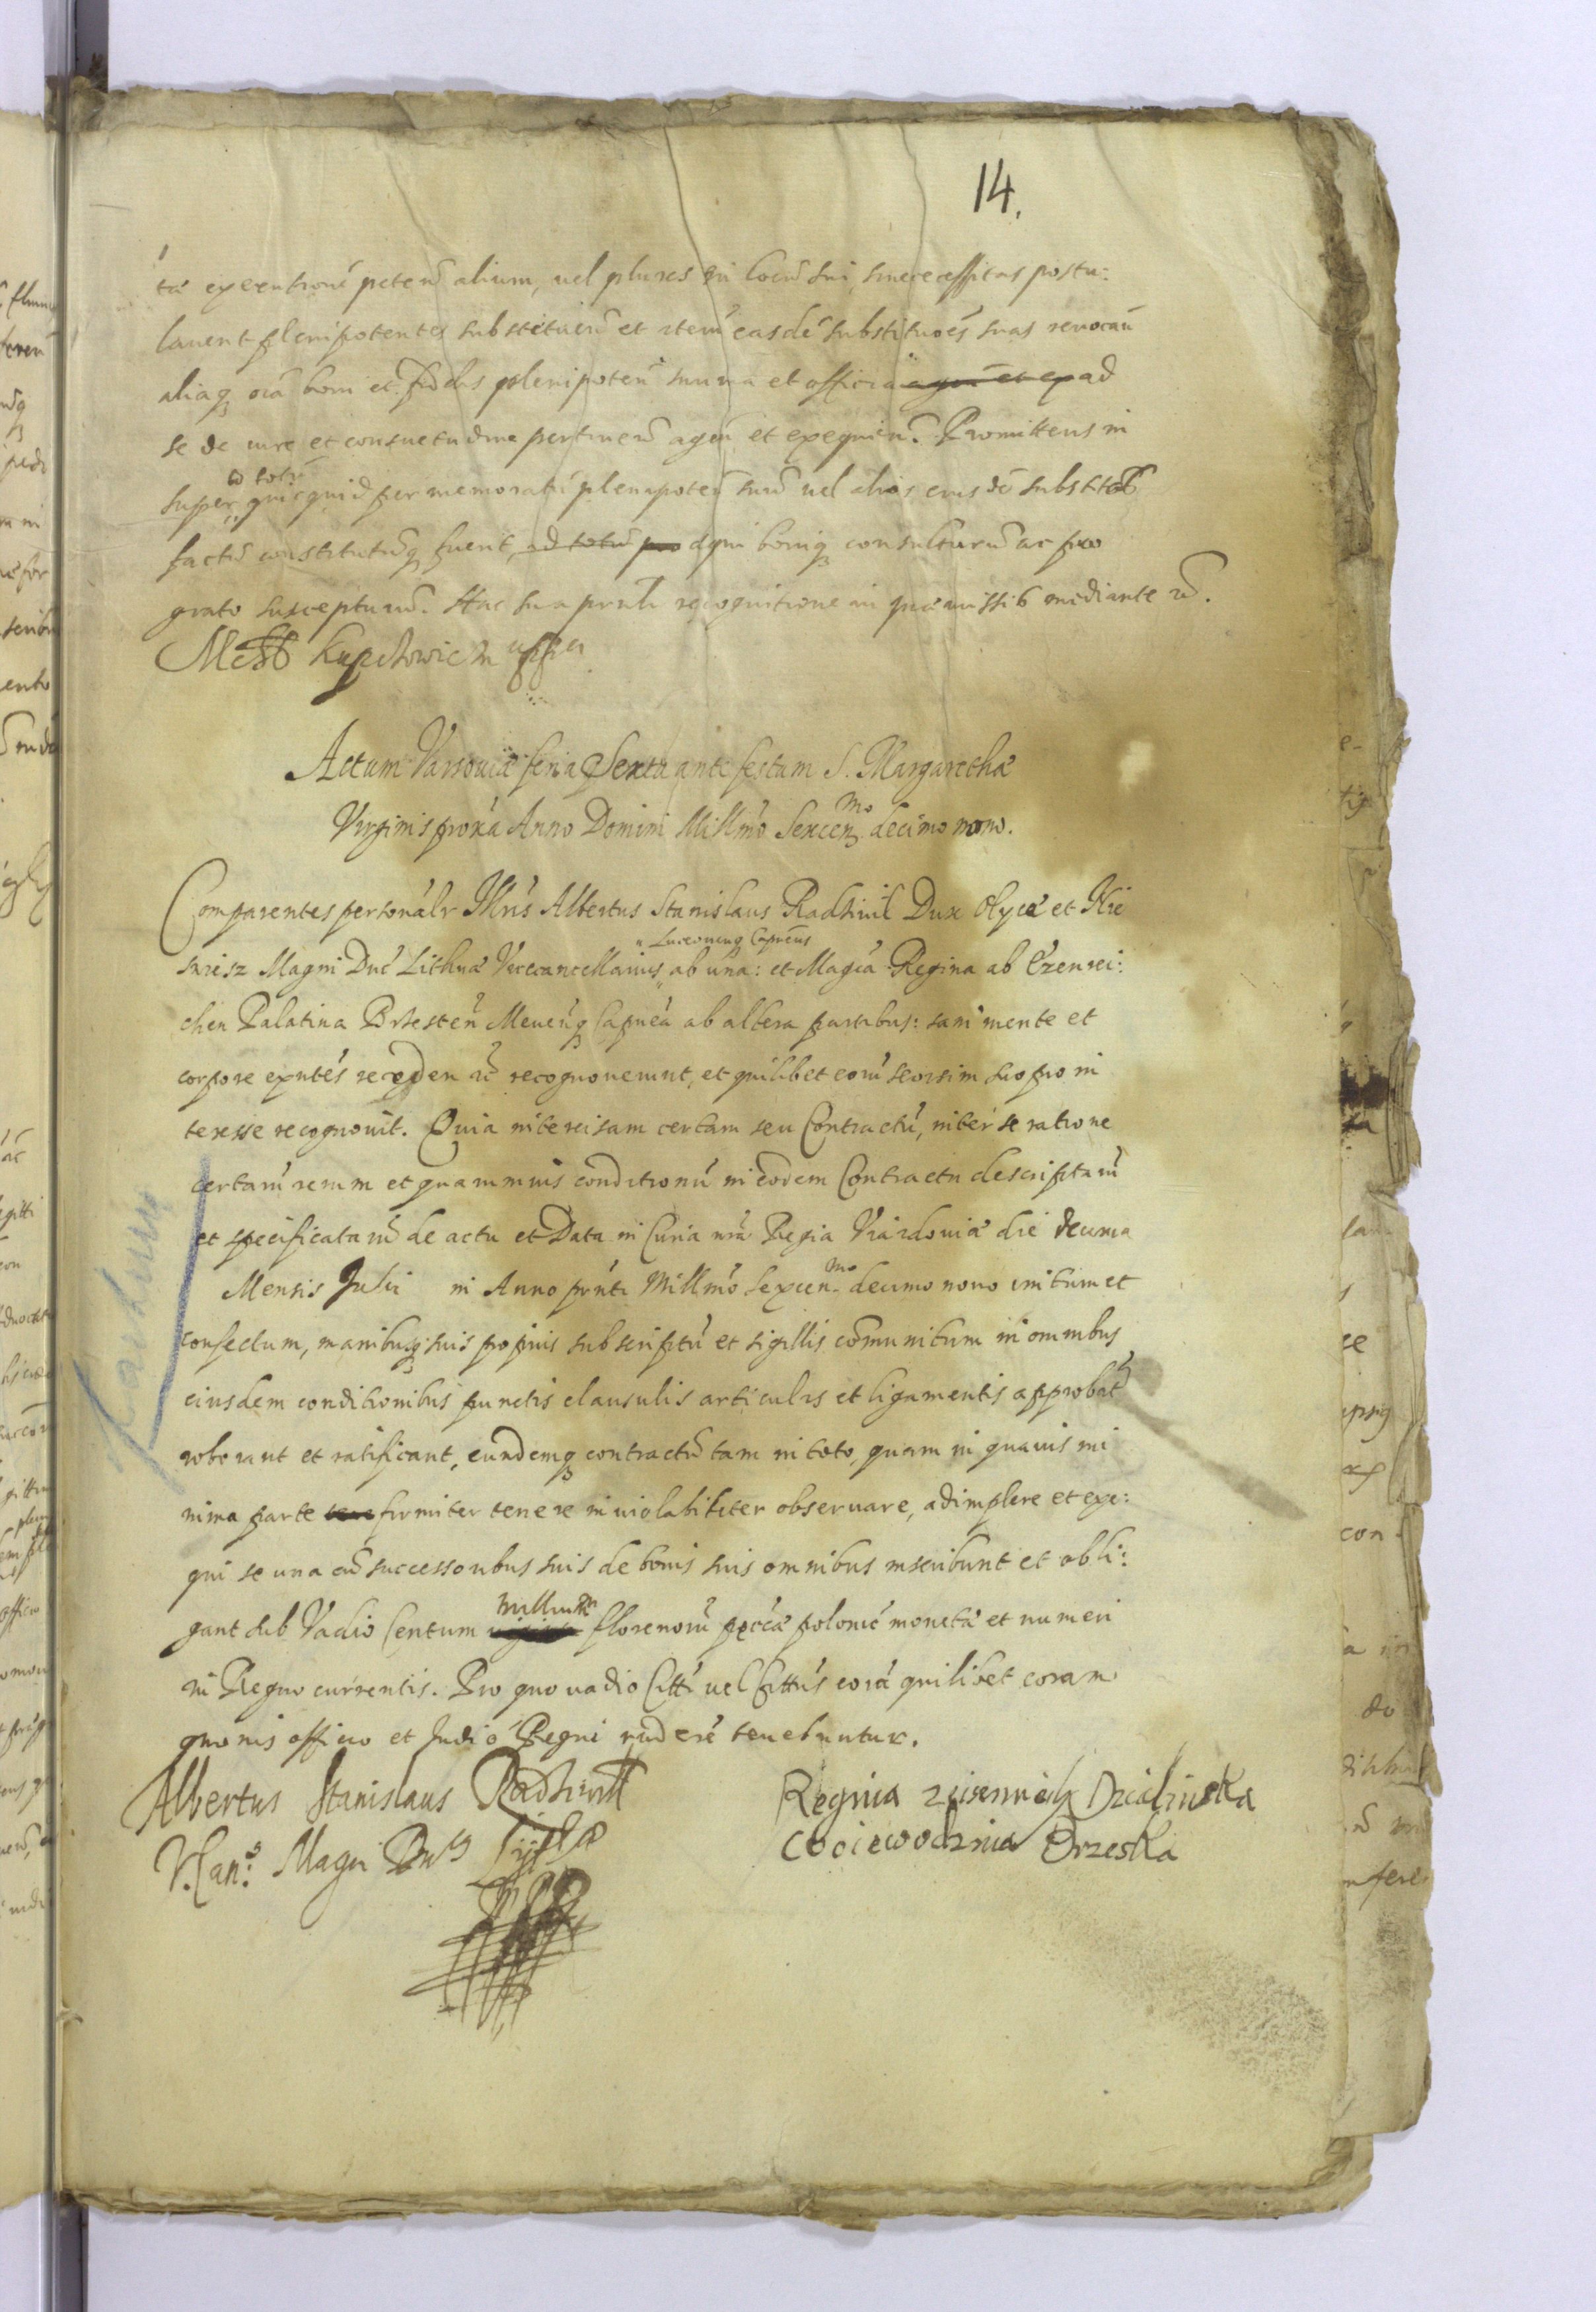 14.
tá executioné peten̄ alium, uel plures in locū sui, si necessitas postu:
lauent plenipotentes substituen̄ et iterū easdē substituoēs suas reuocan̄
aliaq oīa boni et fidelis plenipoten̄ munia et officia agen̄ et ex ad
se de iure et consuetudine pertinen̄ agen̄ et exequien̄. Promittens in
id totū
super quicquid per memoratū plenipoten̄ suū uel alios eius dē substitō
factū constitutūq fuerit, id totū pro aequi boniq consulturū ac pro
grato suscepturū. Hac sua prnti recognitione in praemissib mediante rē.
Actum Varsouiæ feria Sexta ante festum S. Margarethæ
Virginis proxa Anno Domini Millmo Sexcen mo decimo nono.
Comparentes personalr Illris Albertus Stanislaus Radziuil Dux Olycæ et Nie
" Luceoneng Capneus
swiesz Magni Duc Lithuæ Vicecancellarius " ab una: et Magca Regina ab Eizenrei:
chen Palatina Brzesten Meuenq Capnea ab altera partibus: sani mente et
corpore exntes receden rē recognouerunt, et quilibet eorū seorsim suo pro in
teresse recognouit. Quia intercisam certam seu Contractū, inter se ratione
certarū rerum et quarumuis conditionū in eodem Contractu descriptarū
et specificatarū de actu et Data in Curia nra Regia Viazdouiæ die decima
Mensis Julii in Anno prnti Millmo Sexcen mo decimo nono initum et
confectum, manibusq suis propriis subscriptū et sigillis cōmunitum in omnibus
eiusdem conditionibus punctis clausulis articulis et ligamentis approbāt
roborant et ratificant, eundemq contractū tam in toto, quam in quauis mi
nima parte tene firmiter tenere inuiolabiliter obseruare, adimplere et exe:
qui se una cū successoribus suis de bonis suis omnibus inscribunt et obli:
millium
gant sub Vadio Centum florenorū peccæ polonic monetæ et numeri
in Regno currentis. Pro quo uadio Citti uel Cittus eorū quilibet coram
quouis officio et Judio Regni rndere tenebuntur.
Albertus Stanislaus Radziwil
V. Can: Magni Du
Regina Dzialinska
Woiewodzina Brzeska